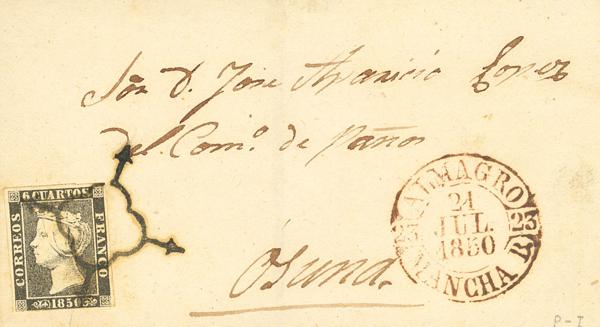 Sor. D. Jose Aparicio Lopez
del Como. de Paños
Osuna.
6 CUARTOS
CORREOS
FRANCO
1850
ALMAGRO
21
JUL.
1850
23
MANCHA B.
P-I